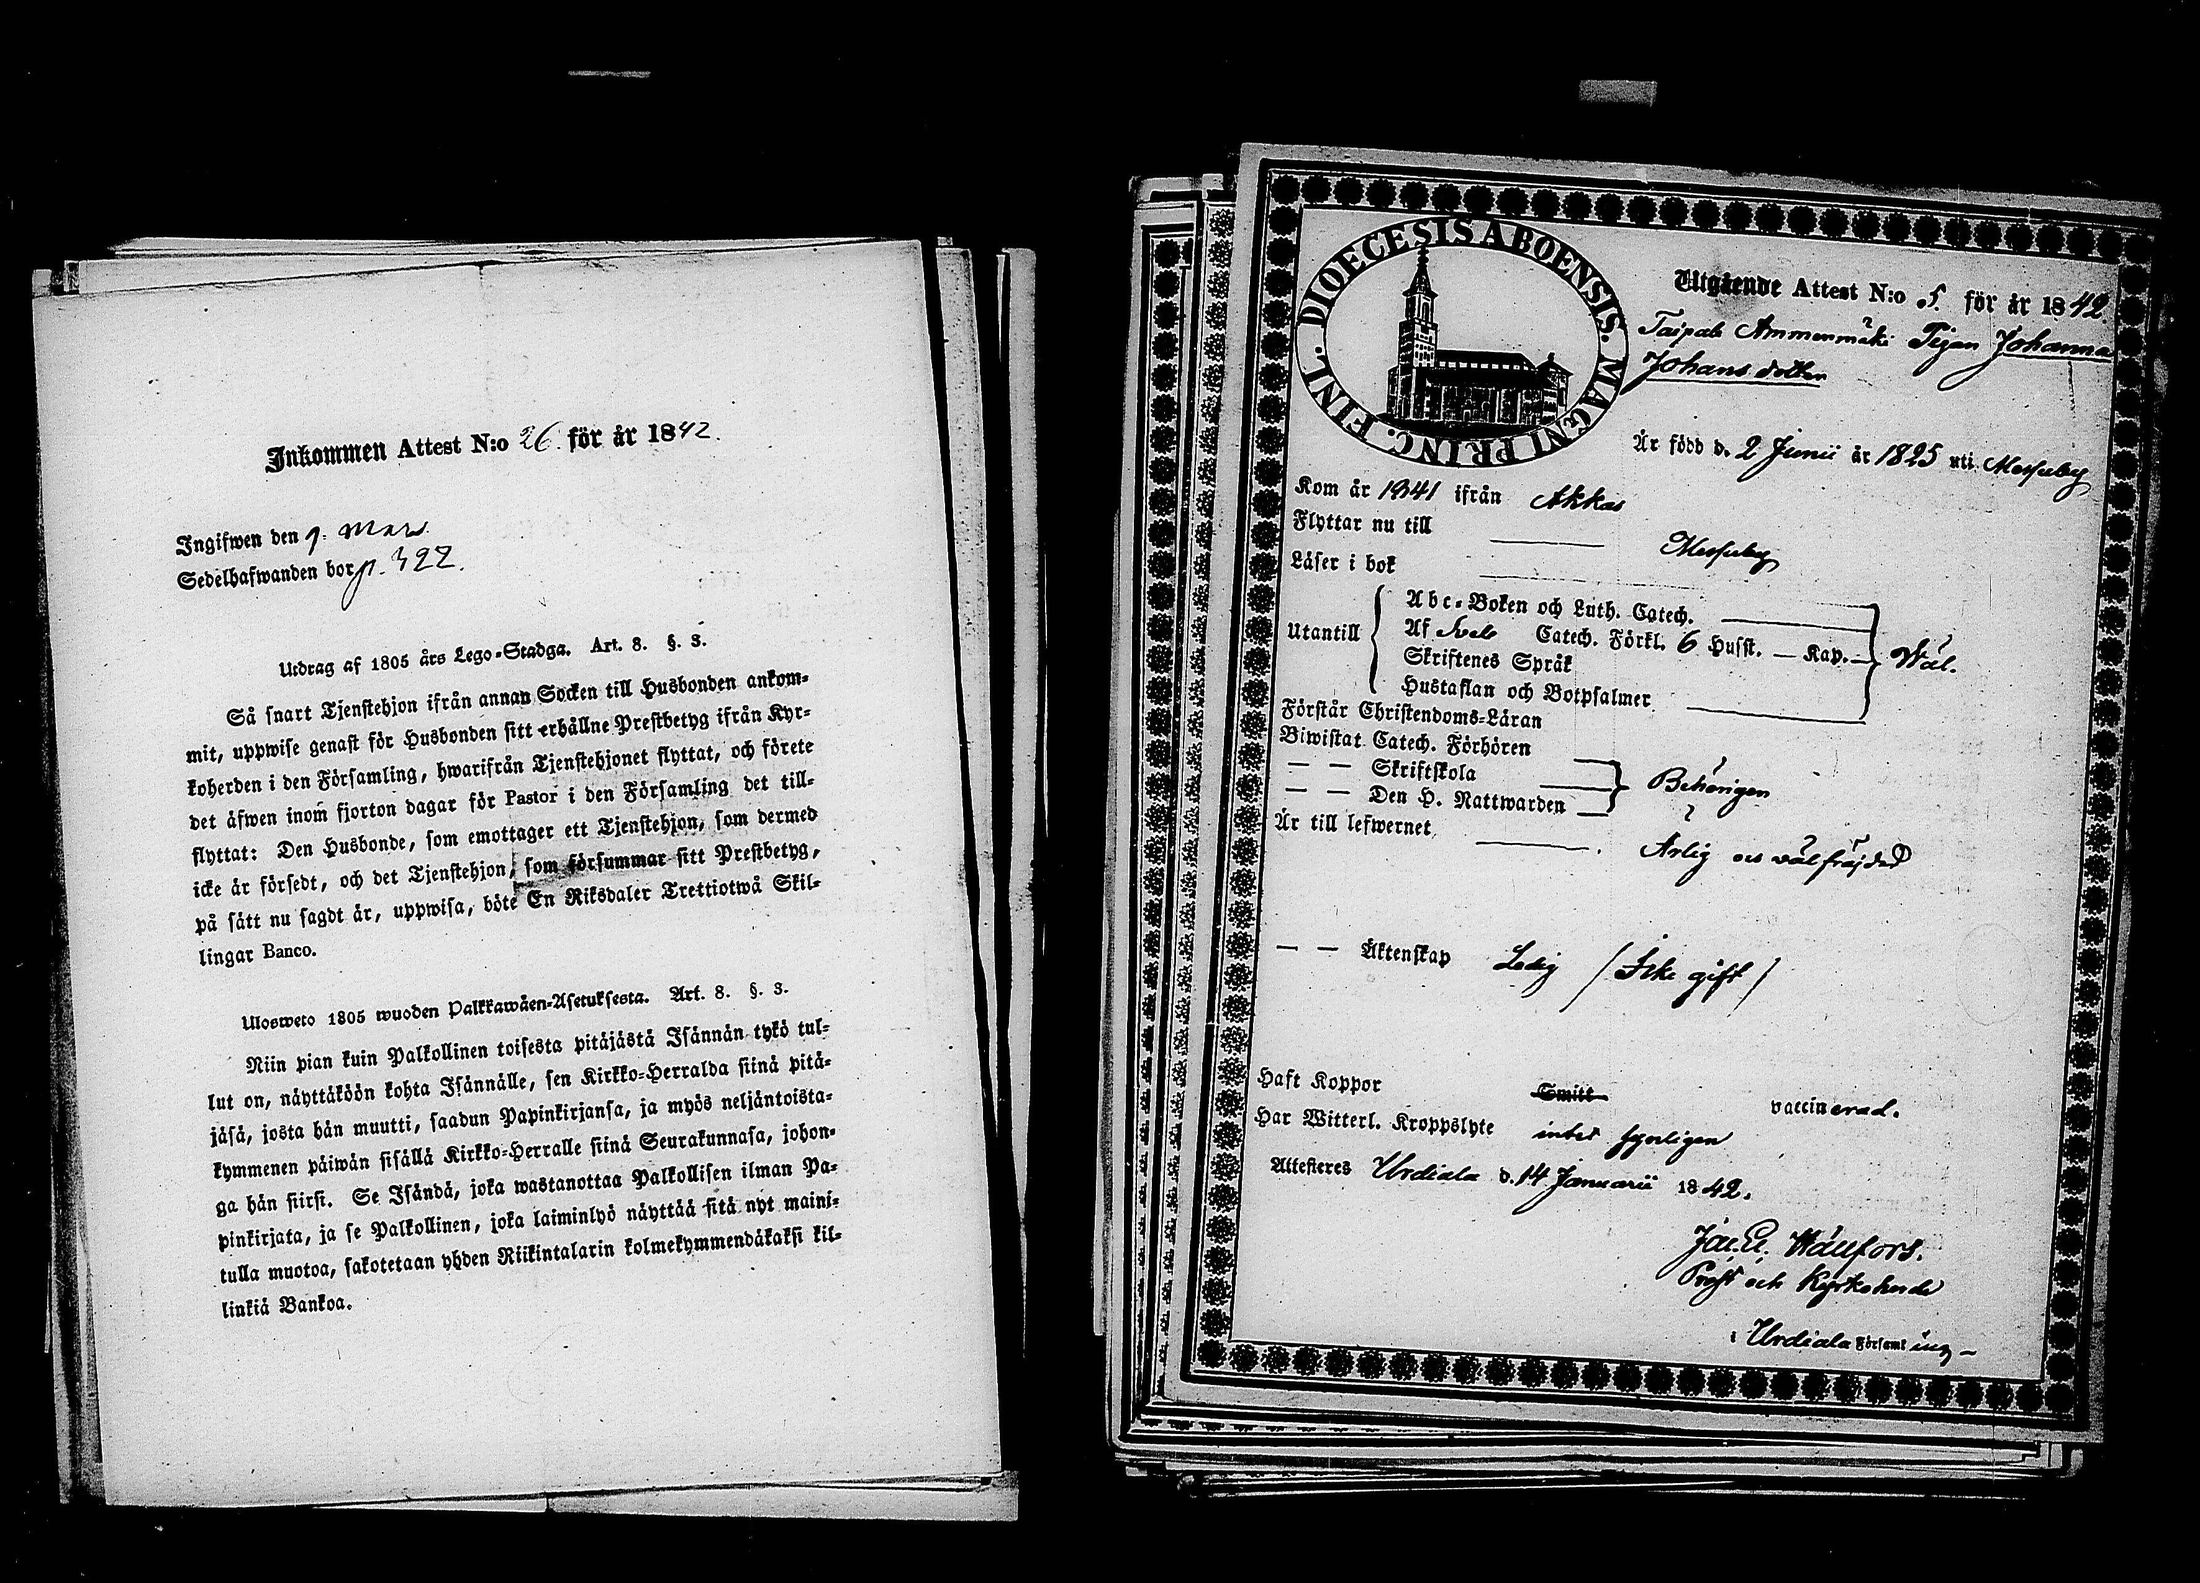 Inkommen Attest N:o 26. för år 1842.
Ingifwen den 9. Mars.
Sedelhafwanden bor p. 322.
Utdrag af 1805 års Lego-Stadga. Art. 8. §. 3.
Så snart Tjenstehjon ifrån annan Socken till Husbonden ankom-
mit, uppwise genast för Husbonden sitt erhållne Prestbetyg ifrån Kyr-
koherden i den Församling, hwarifrån Tjenstehjonet flyttat, och förete
det äfwen inom fjorton dagar för Pastor i den Församling det till-
flyttat: Den Husbonde, som emottager ett Tjenstehjon, som dermed
icke är försedt, och det Tjenstehjon, som försummar sitt Prestbetyg,
på sätt nu sagdt är, uppwisa, böte En Riksdaler Trettiotwå Skil-
lingar Banco.
Ulosweto 1805 wuoden Palkkawäen-Asetuksesta. Art. 8. §. 3.
Niin pian kuin Palkollinen toisesta pitäjästä Isännän tykö tul-
lut on, näyttäköön kohta Isännälle, sen Kirkko-Herralda siinä pitä-
jäsä, josta hän muutti, saadun Papinkirjansa, ja myös neljäntoista-
kymmenen päiwän sisällä Kirkko-Herralle siinä Seurakunnasa, johon-
ga hän siirsi. Se Isändä, joka wastanottaa Palkollisen ilman Pa-
pinkirjata, ja se Palkollinen, joka laiminlyö näyttää sitä nyt maini-
tulla muotoa, sakotetaan yhden Riikintalarin kolmekymmendäkaksi kil-
linkiä Bankoa.
DIOECESIS ABOENSIS. MAGNI PRINC. FINL.
Utgående Attest N:o 5. för år 1842.
Taipale Ammenmäki Pigan Johanna
Johansdotter
Är född d. 2 Junii år 1825 uti Messuby
Kom år 1841 ifrån Akkas
Flyttar nu till Messuby
Läser i bok
Utantill
Abc-Boken och Luth. Catech.
Af Sveb Catech. Förkl. 6 Husst. — Kap. — Wäl.
Skriftenes Språk
Hustaflan och Botpsalmer
Förstår Christendoms-Läran
Biwistat Catech. Förhören
— — Skriftskola Behörigen
— — Den H. Nattwarden
Är till lefwernet Ärlig och välfräjdad
— — Äktenskap Ledig / Icke gift /
Haft Koppor Smitt vaccinerad.
Har Witterl. Kroppslyte intet synligen
Attesteres Urdiala d. 14 Januarii 1842.
Prost och Kyrkoherde
i Urdiala Församling